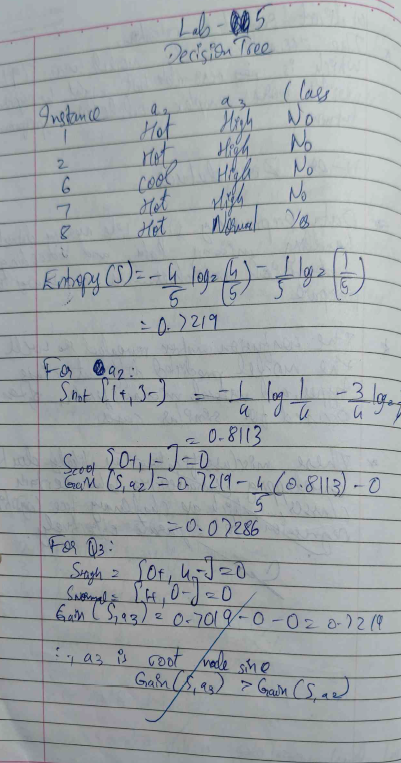 Lab - 5
Decision Tree
Instance a2 a3 Class
1 Hot High No
2 Hot High No
6 Cool High No
7 Hot High No
8 Hot Normal Yes
:
Entropy (S) = -4/5 log2 (4/5) - 1/5 log2 (1/5)
= 0.7219
For a2:
SHot [1+, 3-] = -1/4 log 1/4 - 3/4 log2
= 0.8113
Scool [0+, 1-] = 0
Gain (S, a2) = 0.7219 - 4/5 (0.8113) - 0
= 0.07286
For Q3:
SHigh = [0+, 4-] = 0
SNormal = [1+, 0-] = 0
Gain (S, a3) = 0.7019 - 0 - 0 = 0.7219
∴, a3 is root node
Gain (S, a3) > Gain (S, a2)